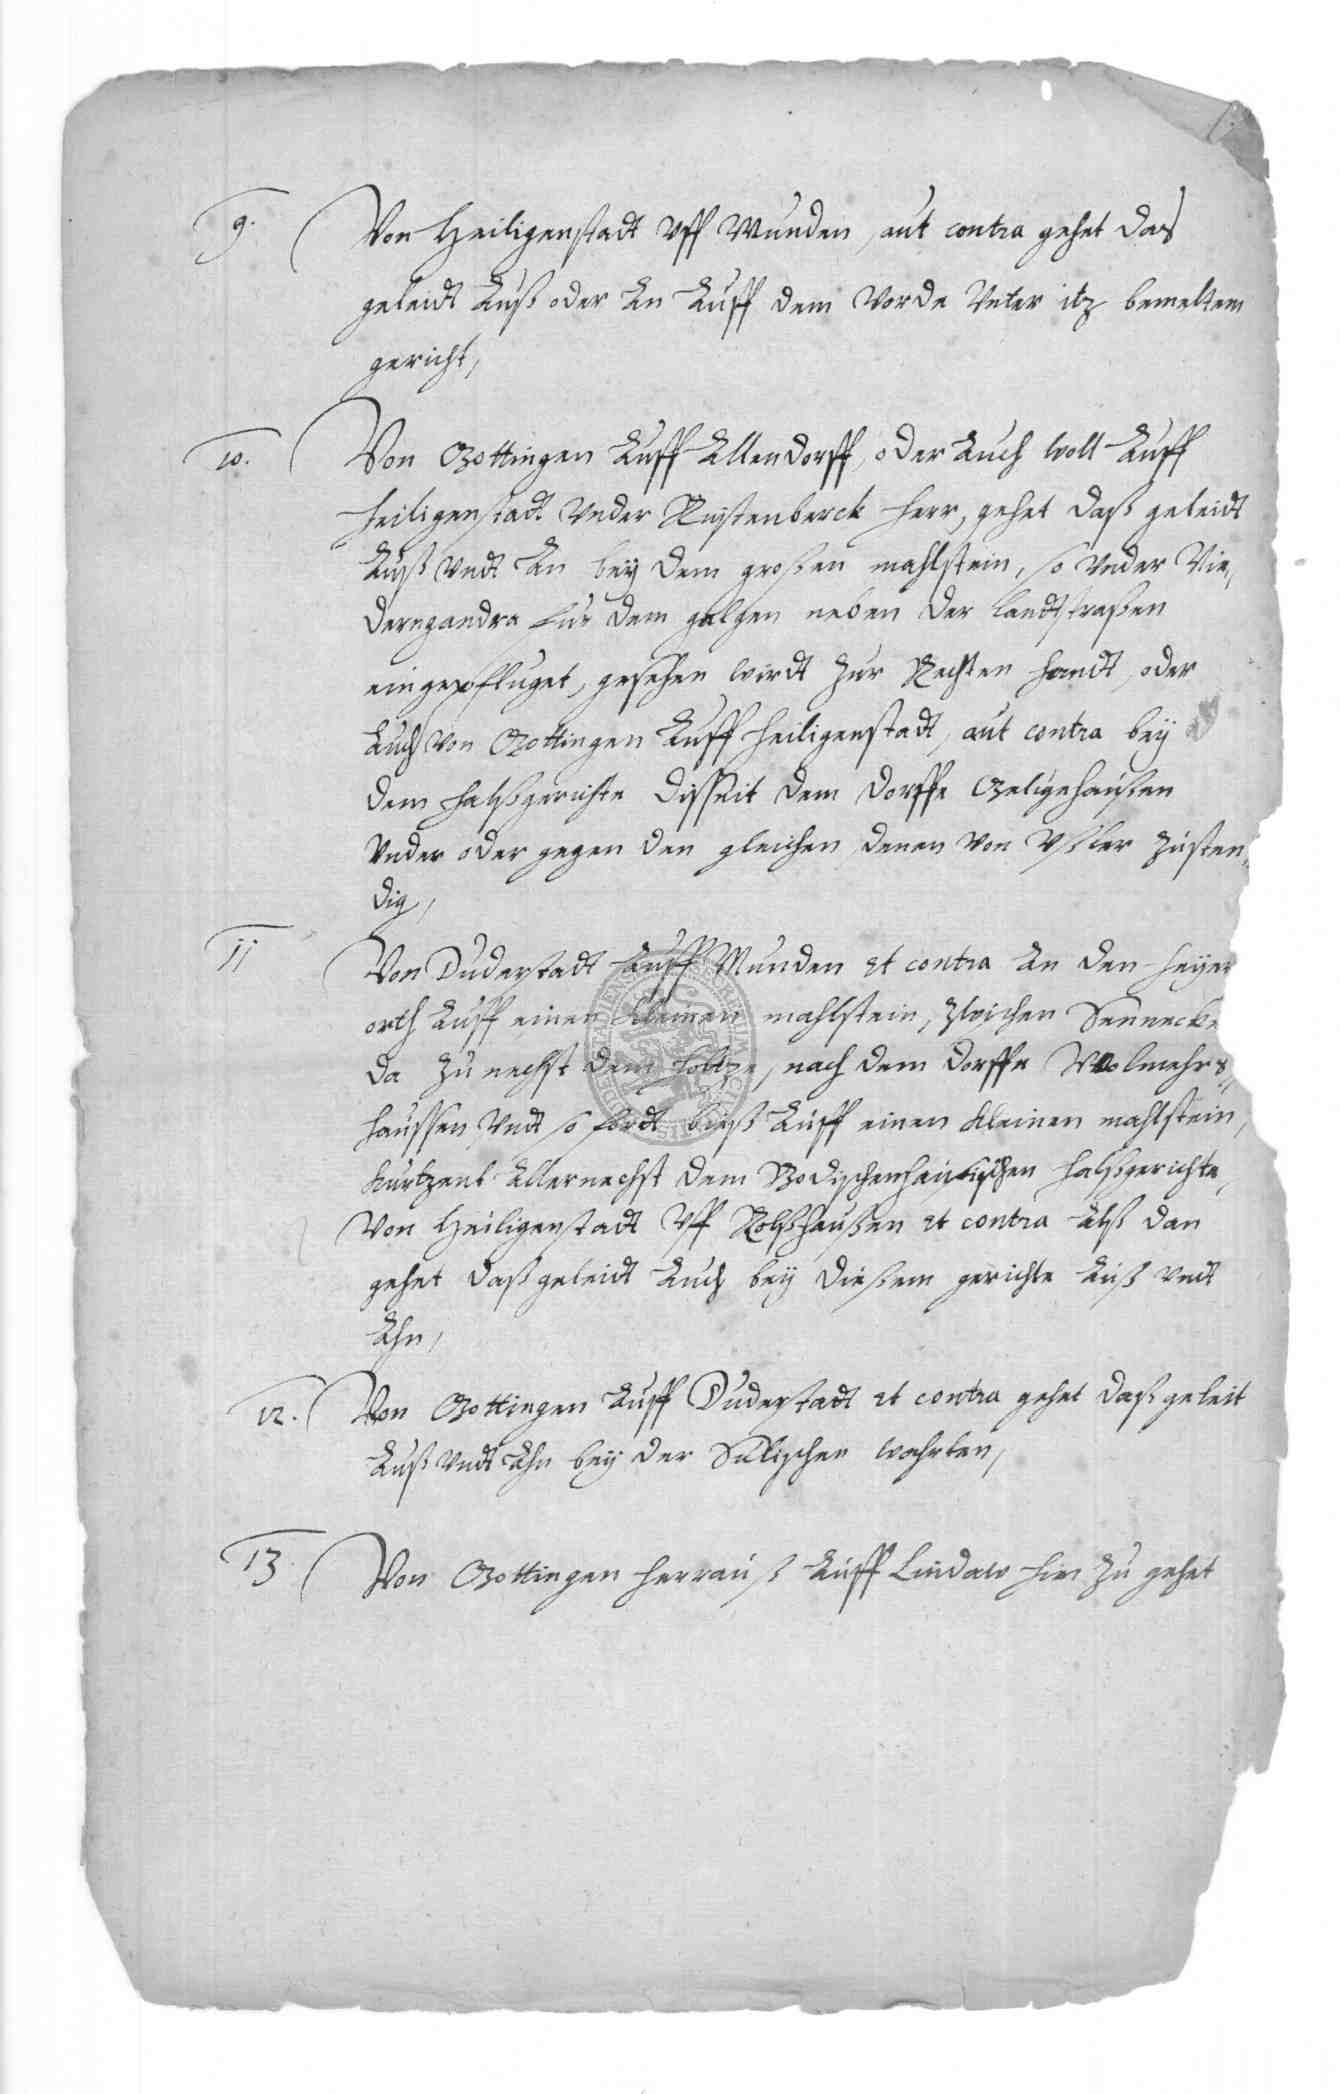 9. Von Heiligenstadt Vff Munden, aut contra gehet das
geleidt Auß oder An Auff dem Vorde Vnter itz bemeltem
gericht,
10. Von Gottingen Auff Allendorff, oder Auch woll Auff
Heiligenstadt Vnder Rustenberck herr, gehet daß geleidt
Auß Vndt An bey dem großen mahlstein, so Vnder Nie,
derngandra für dem galgen neben der landtstraßen
eingepfluget, gesehen wirdt zur Rechten handt, oder
Auch Von Gottingen Auff Heiligenstadt, aut contra bey
dem halßgerichte disseit dem dorffe Geligehaußen
Vnder oder gegen den gleichen denen Von Vßler zusten,
dig,
11 Von Duderstadt Auff Munden et contra An den Heyer
orth Auff einen kleinen mahlstein, zwichen Sennecke
da zu nechst dem holtze, nach dem dorffe Wolmehrs,
haussen Vndt so fordt biß Auff einen kleinen mahlstein,
Allernechst dem halßgerichte,
Von Heiligenstadt Vff Rolßhaußen et contra Alß dan
gehet daß geleidt Auch bey dießem gerichte Auß Vndt
Ahn,
12. Von Gottingen Auff Duderstadt et contra gehet daß geleit
Auß Vndt Ahn bey der Sülischen wahrten,
13 Von Gottingen herrauß Auff Lindaw hin zu gehet